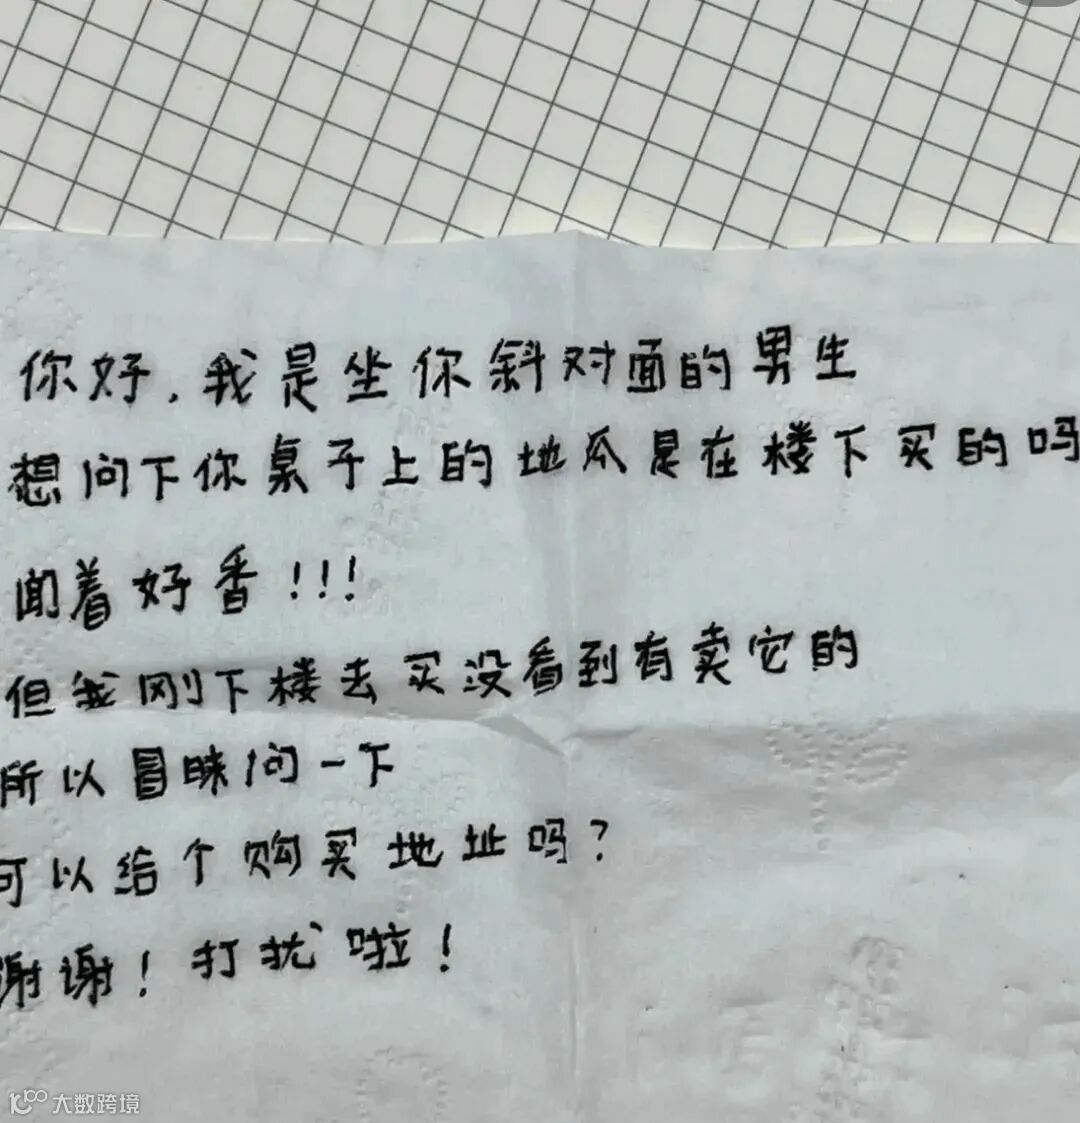 你好，我是坐你斜对面的男生
想问下你桌子上的地瓜是在楼下买的吗
闻着好香！！！
但我刚下楼去买没看到有卖它的
所以冒昧问一下
可以给个购买地址吗？
谢谢！打扰啦！
大数跨境